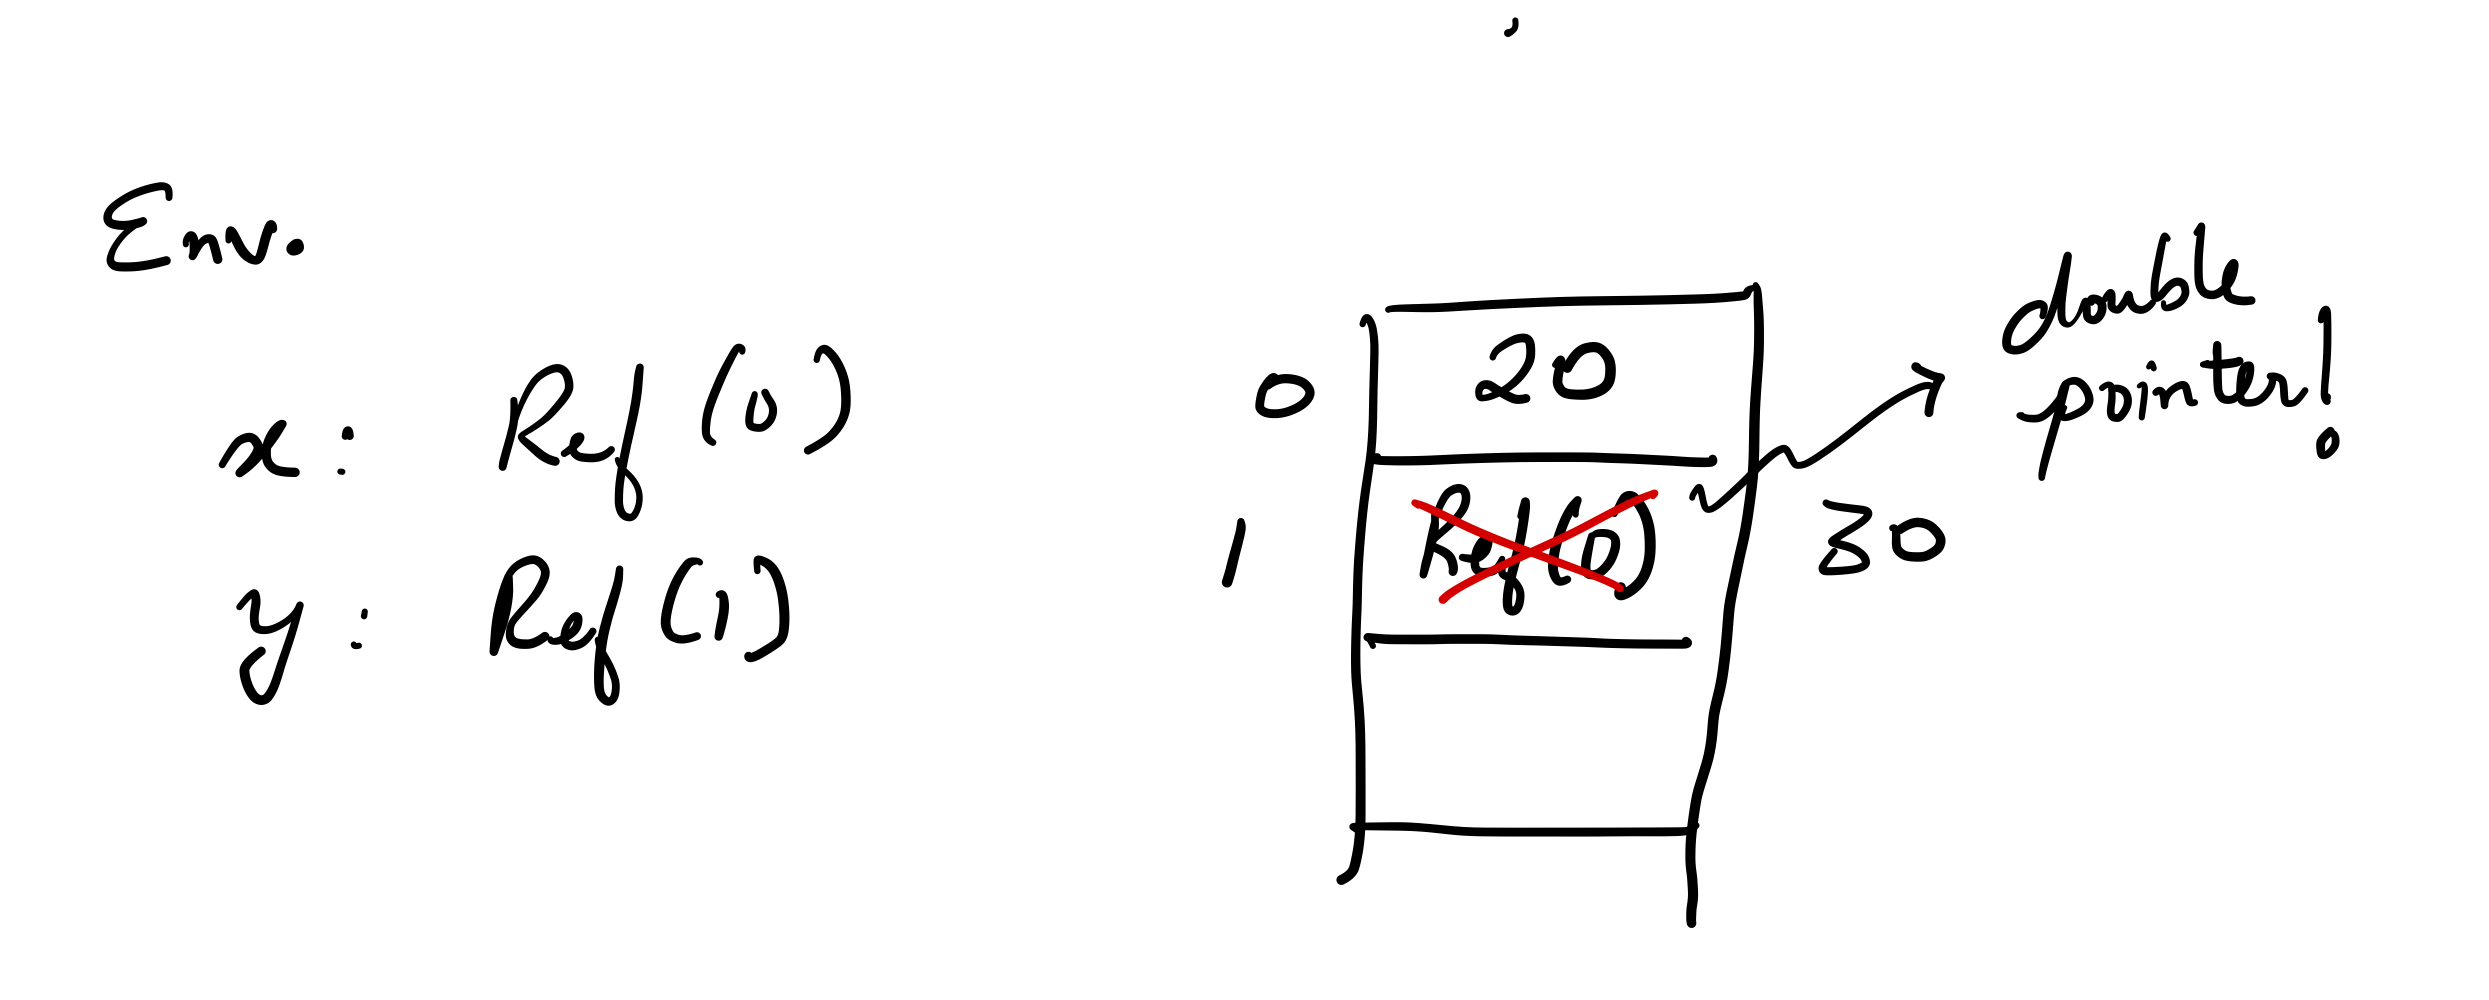 Env.
x: Ref (0)
y: Ref (1)
0 20
1 Ref(0) 30
double
pointer!